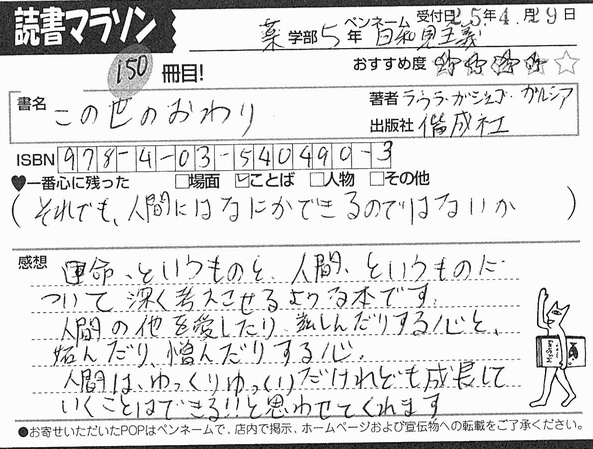 読書マラソン
ペンネーム 受付日25年4月29日
薬学部5年 日和見主義
150冊目!
おすすめ度 ☆☆☆☆☆
書名 この世のおわり
著者 ラウラ・ガジェゴ・ガルシア
出版社 偕成社
ISBN 978-4-03-540490-3
♥一番心に残った □場面 ☑ことば □人物 □その他
(それでも、人間にはなにかできるのではないか)
感想
運命、というものと、人間、というものに
ついて深く考えさせるような本です。
人間の他を愛したり、慈しんだりする心と、
妬んだり、憎んだりする心。
人間は、ゆっくりゆっくりだけれども成長して
いくことはできる!!と思わせてくれます
●お寄せいただいたPOPはペンネームで、店内で掲示、ホームページおよび宣伝物への転載をご了承ください。